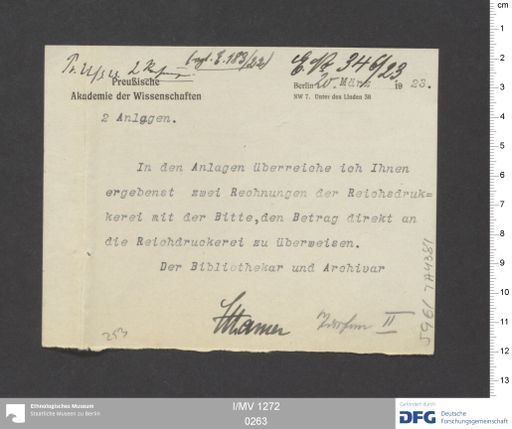 (vgl. E. 183/22)
E. Nr 346/23
Preußische
Akademie der Wissenschaften
Berlin 20. März 1923.
NW 7. Unter den Linden 38
2 Anlagen.
In den Anlagen überreiche ich Ihnen
ergebenst zwei Rechnungen der Reichsdruk=
kerei mit der Bitte, den Betrag direkt an
die Reichdruckerei zu überweisen.
Der Bibliothekar und Archivar
253
II
Ethnologisches Museum
Staatliche Museen zu Berlin
I/MV 1272
0263
Gefördert durch
DFG
Deutsche
Forschungsgemeinschaft
cm
1
2
3
4
5
6
7
8
9
10
11
12
13